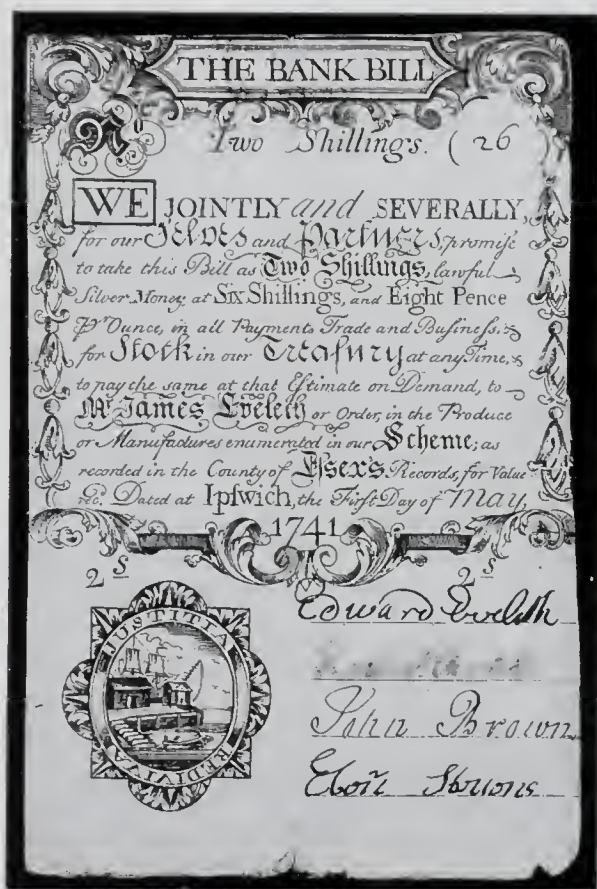 THE BANK BILL
No Two Shillings. ( 26
WE JOINTLY and SEVERALLY,
for our Selves and Partners, promise
to take this Bill as Two Shillings, lawful
Silver Money, at Six Shillings, and Eight Pence
Pr Ounce, in all Payments Trade and Business, &
for Stock in our Treasury at any Time, &
to pay the same at that Estimate on Demand, to
Mr James Eveleth or Order, in the Produce
or Manufactures enumerated in our Scheme; as
recorded in the County of Essex's Records, for Value
recd. Dated at Ipswich, the First Day of May,
1741
2 S 2 S
Edward Eveleth
John Brown
JUSTITIA
REDIVIVA